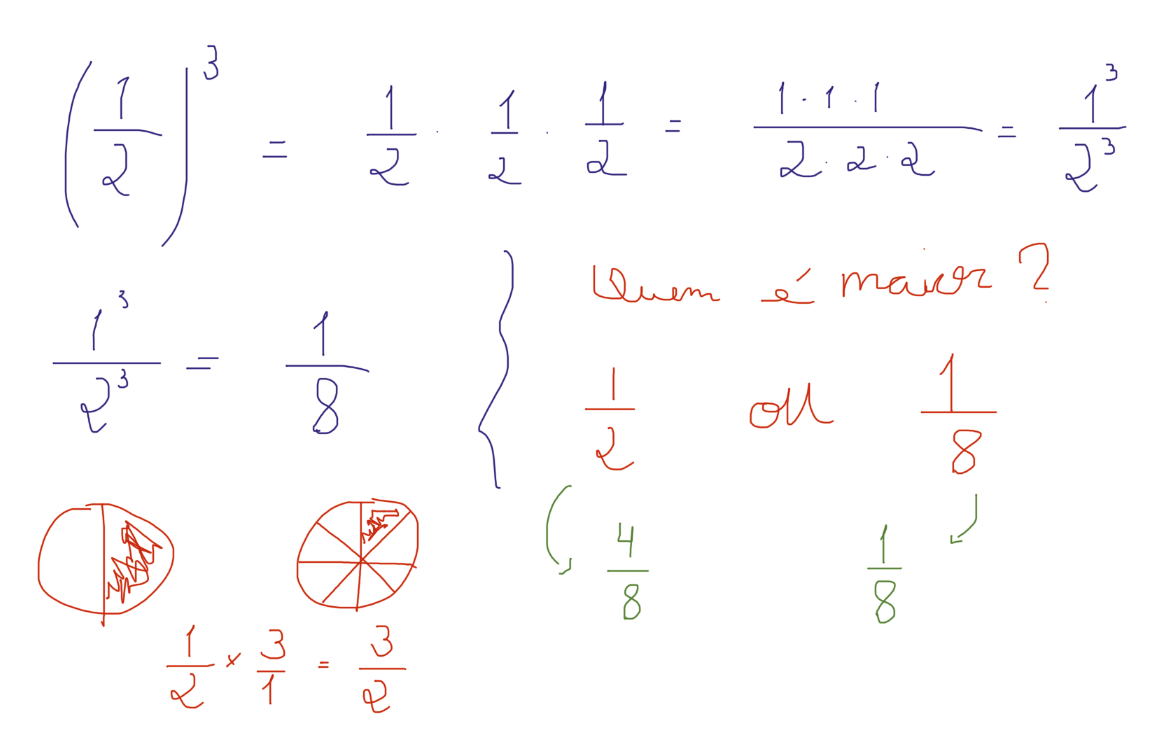 (1/2)³ = 1/2 · 1/2 · 1/2 = 1·1·1/2·2·2 = 1³/2³
1³/2³ = 1/8
Quem é maior?
1/2 ou 1/8
4/8 1/8
1/2 × 3/1 = 3/2